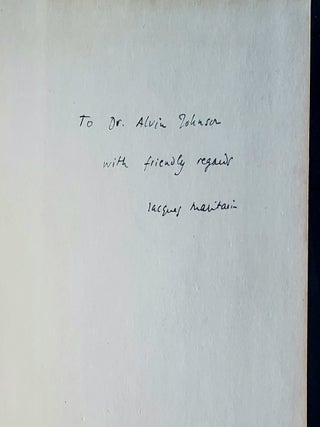 To Dr. Alvin Johnson
with friendly regards
Jacques Maritain